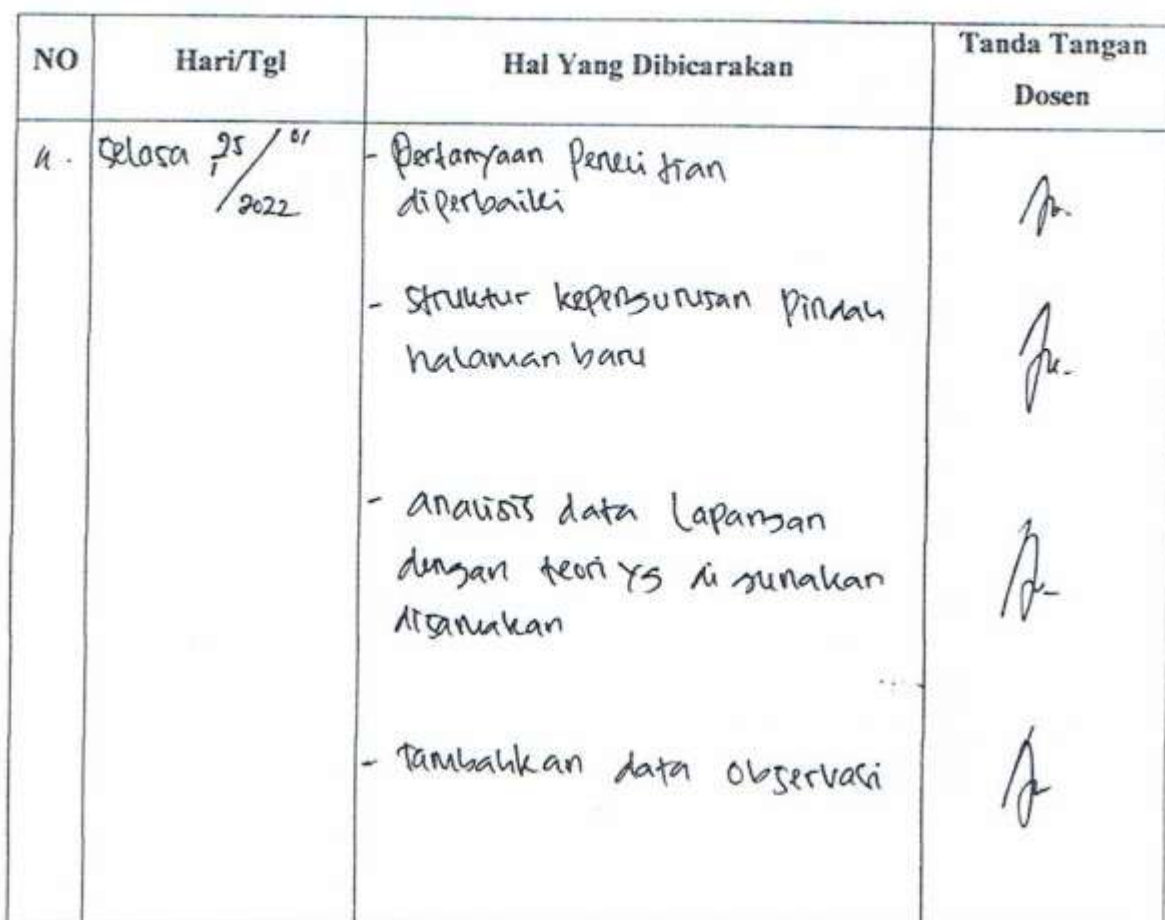 NO
Hari/Tgl
Hal Yang Dibicarakan
Tanda Tangan
Dosen
Selasa 25/01
/2022
- Pertanyaan Penelitian
diperbaiki
- Struktur kepengurusan Pindah
halaman baru
- analisis data Lapangan
dengan teori yg di gunakan
disamakan
- Tambahkan data Observasi